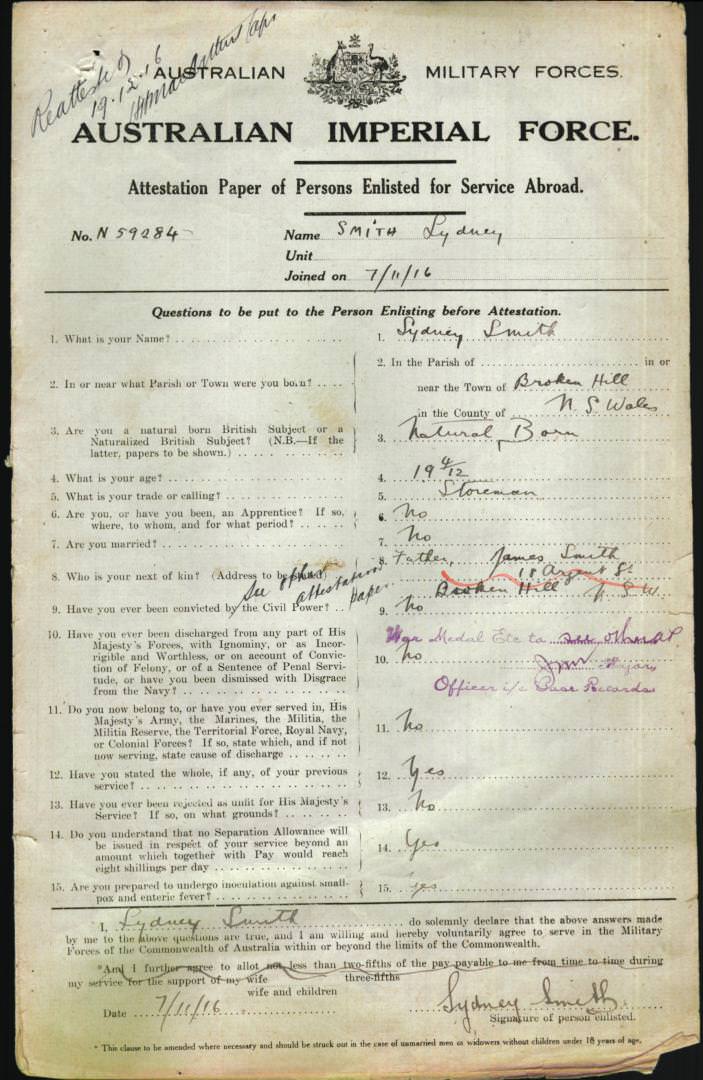 Reattested
19.12.16
AUSTRALIAN MILITARY FORCES.
AUSTRALIAN IMPERIAL FORCE.
Attestation Paper of Persons Enlisted for Service Abroad.
No. N 59284 Name SMITH Sydney
Unit
Joined on 7/11/16
Questions to be put to the Person Enlisting before Attestation.
1. What is your Name? 1. Sydney Smith
2. In or near what Parish or Town were you born? 2. In the Parish of in or
near the Town of Broken Hill
in the County of N S Wales
3. Are you a natural born British Subject or a
Naturalized British Subject? (N.B.—If the
latter, papers to be shown.) 3. Natural Born
4. What is your age? 4. 19 4/12
5. What is your trade or calling? 5. Storeman
6. Are you, or have you been, an Apprentice? If so,
where, to whom, and for what period? 6. No
7. Are you married? 7. No
8. Who is your next of kin? (Address to be stated) 8. Father, James Smith
18 Argent St
Broken Hill N S W.
See other
attestation
paper.
9. Have you ever been convicted by the Civil Power? 9. No
10. Have you ever been discharged from any part of His
Majesty's Forces, with Ignominy, or as Incor-
rigible and Worthless, or on account of Convic-
tion of Felony, or of a Sentence of Penal Servi-
tude, or have you been dismissed with Disgrace
from the Navy? 10. No
War Medal Etc to see other AP
Major
Officer i/c Base Records
11. Do you now belong to, or have you ever served in, His
Majesty's Army, the Marines, the Militia, the
Militia Reserve, the Territorial Force, Royal Navy,
or Colonial Forces? If so, state which, and if not
now serving, state cause of discharge 11. No
12. Have you stated the whole, if any, of your previous
service? 12. Yes
13. Have you ever been rejected as unfit for His Majesty's
Service? If so, on what grounds? 13. No
14. Do you understand that no Separation Allowance will
be issued in respect of your service beyond an
amount which together with Pay would reach
eight shillings per day 14. Yes
15. Are you prepared to undergo inoculation against small-
pox and enteric fever? 15. Yes
I, Sydney Smith do solemnly declare that the above answers made
by me to the above questions are true, and I am willing and hereby voluntarily agree to serve in the Military
Forces of the Commonwealth of Australia within or beyond the limits of the Commonwealth.
*And I further agree to allot not less than two-fifths of the pay payable to me from time to time during
my service for the support of my wife three-fifths
wife and children
Date 7/11/16 Sydney Smith
Signature of person enlisted.
* This clause to be amended where necessary and should be struck out in the case of unmarried men or widowers without children under 18 years of age.